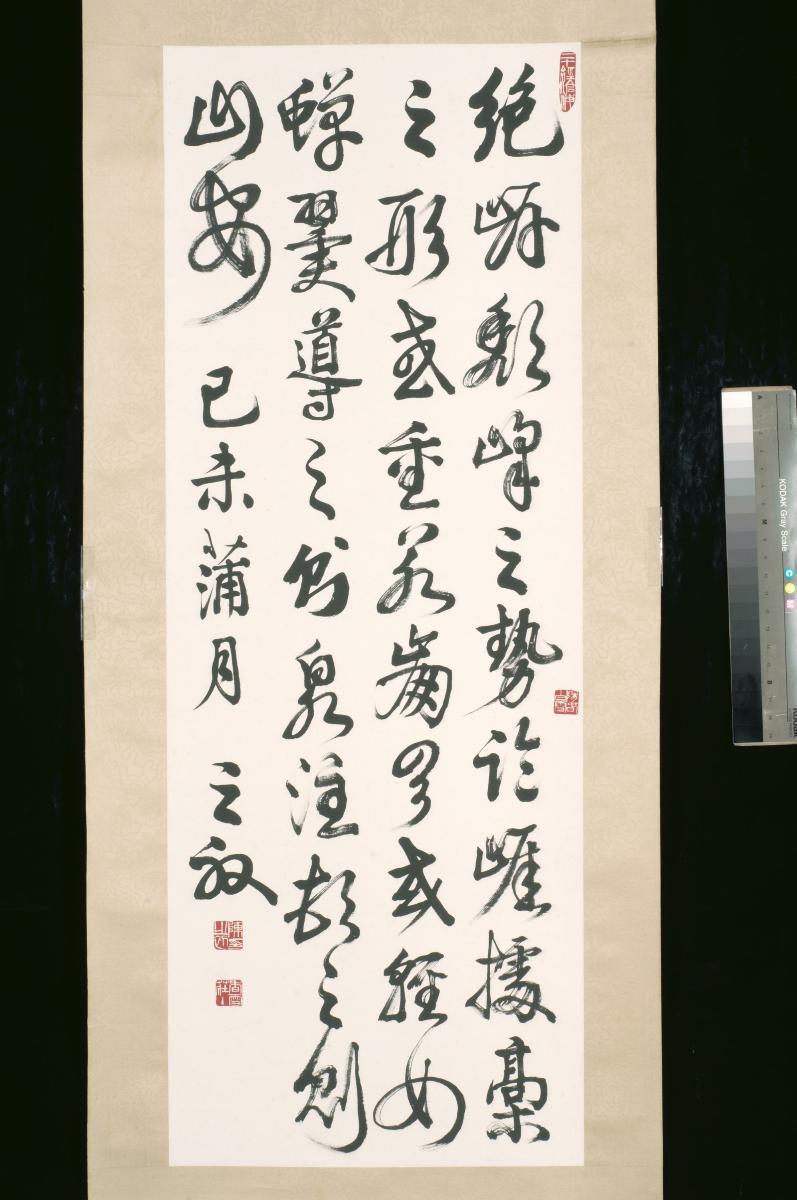 絕岸頹峰之勢臨危據槀
之形或重若崩雲或輕如
蟬翼導之則泉注頓之則
山安 己未蒲月 之初
香雪莊